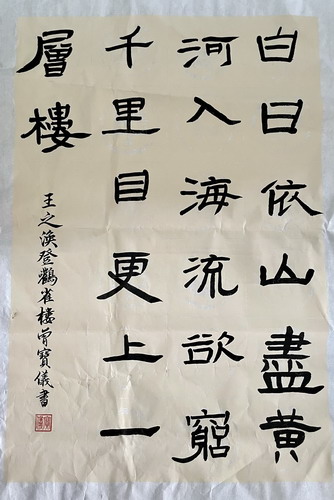 白日依山盡黄
河入海流欲窮
千里目更上一
層樓
王之渙登鸛雀樓曾寶儀書